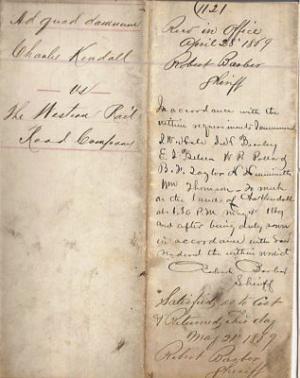 Ad quod damnum
Charles Kendall
vs
The Western Rail
Road Company
1121
Recd in Office
April 28th 1869
Robert Barber
Sheriff
In accordance with the
within requirements I summoned
E. J.
B. F. Taylor
Wm Thomson to meet
on the lands of Chas Kendall
at 1.30 P.M. May 4 1869
and after being duly sworn
in accordance with law
rendered the within verdict
Robert Barber
Sheriff
Satisfied as to Cost
& Returned this day
May 21st 1869
Robert Barber
Sheriff